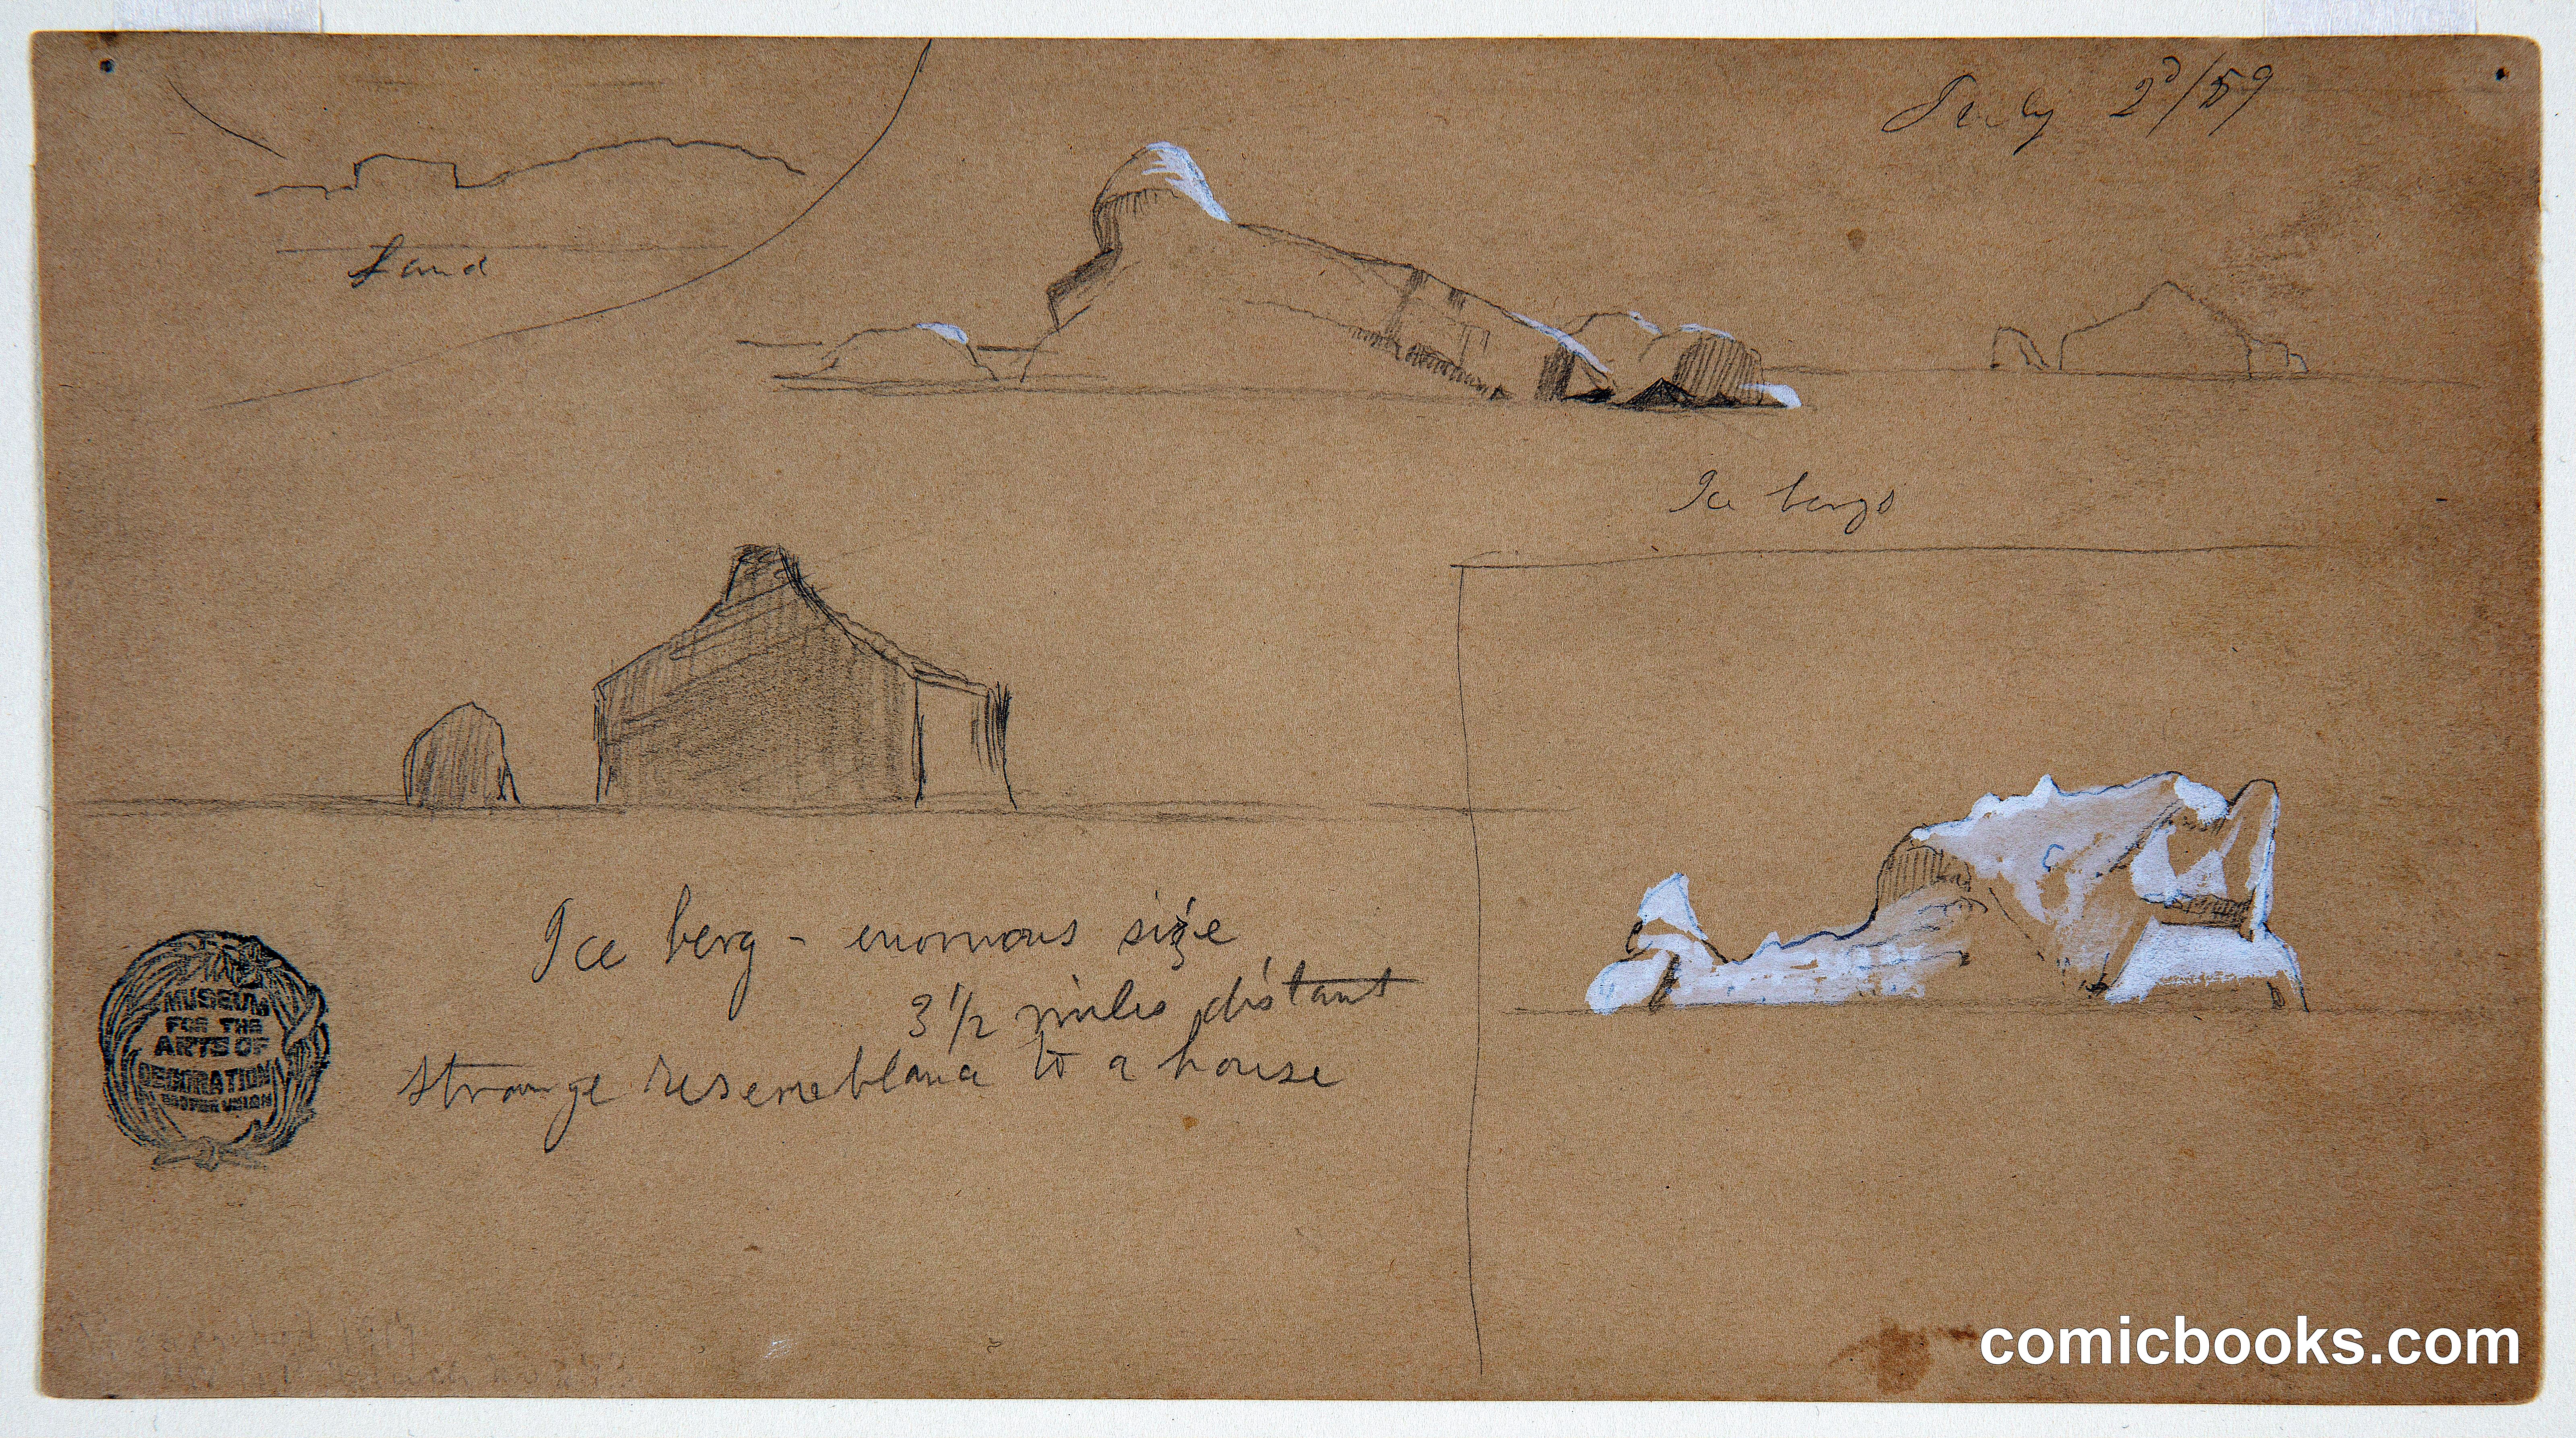 July 2d/59
Land
Ice bergs
Ice berg - enormous size
3 1/2 miles distant
strange resemblance to a house
MUSEUM
FOR THE
ARTS OF
DECORATION
COOPER UNION
comicbooks.com